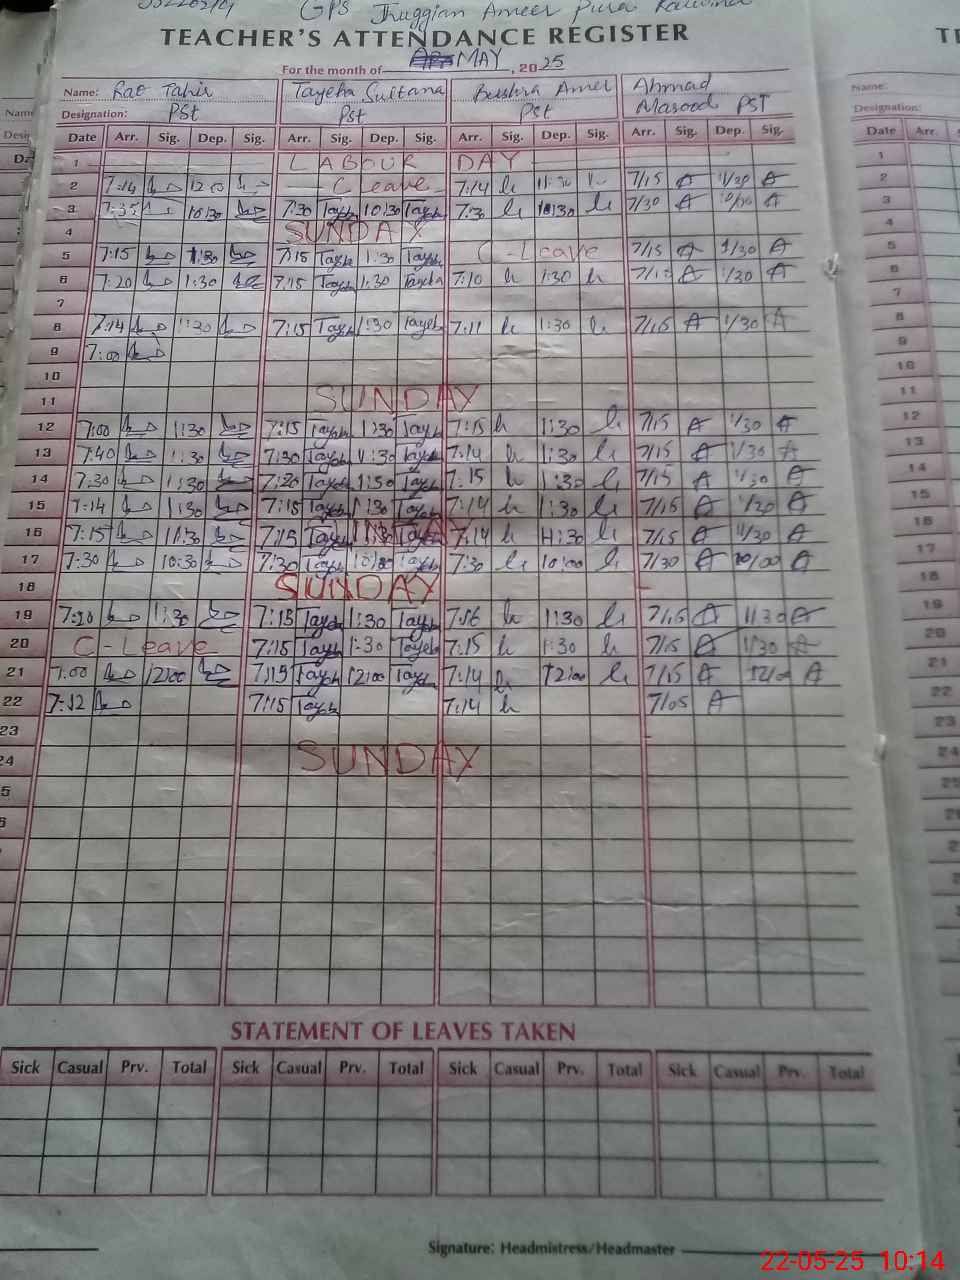 GPS Jhuggian Ameer Pura
TEACHER'S ATTENDANCE REGISTER
For the month of MAY, 2025
Name: Rao Tahir Tayeba Sultana Bushra Amer Ahmad
Designation: PSt Pst Pst Masood PST
Date Arr. Sig. Dep. Sig. Arr. Sig. Dep. Sig. Arr. Sig. Dep. Sig. Arr. Sig. Dep. Sig.
1 LABOUR DAY
2 7:14 12:00 C Leave 7:14 11:30 7/15 11/30
3 7:35 10:30 7:30 Tayeba 10:30 Tayeba 7:30 10:30 7/30
4 SUNDAY
5 7:15 1:30 7:15 Tayeba 1:30 Tayeba C-Leave 7/15 1/30
6 7:20 1:30 7:15 Tayeba 1:30 Tayeba 7:10 1:30 1/30
7
8 7:14 1:30 7:15 Tayeba 1:30 Tayeba 7:11 1:30 7/15 1/30
9 7:00
10
11 SUNDAY
12 7:00 1:30 7:15 Tayeba 1:30 Tayeba 7:15 1:30 7/15 1/30
13 7:40 1:30 7:30 Tayeba 1:30 Tayeba 7:14 1:30 7/15 1/30
14 7:30 1:30 7:20 Tayeba 1:30 Tayeba 7:15 1:30 7/15 1/30
15 7:14 1:30 7:15 Tayeba 1:30 Tayeba 7:14 1:30 7/15 1/30
16 7:15 11:30 7:15 Tayeba 11:30 Tayeba 7:14 11:30 7/15 11/30
17 7:30 10:30 7:30 Tayeba 10:00 Tayeba 7:30 10:00 7/30 10/00
18 SUNDAY
19 1:30 7:15 Tayeba 1:30 Tayeba 1:30 7/15 1/30
20 C-Leave 7:15 Tayeba 1:30 Tayeba 7:15 1:30 7/15 1/30
21 7:00 12:00 7:15 Tayeba 12:00 Tayeba 7:14 12:00 7/15
22 7:12 7:15 Tayeba 7:14 7/05
23
24 SUNDAY
STATEMENT OF LEAVES TAKEN
Sick Casual Prv. Total Sick Casual Prv. Total Sick Casual Prv. Total Sick Casual Prv. Total
Signature: Headmistress/Headmaster
22-05-25 10:14